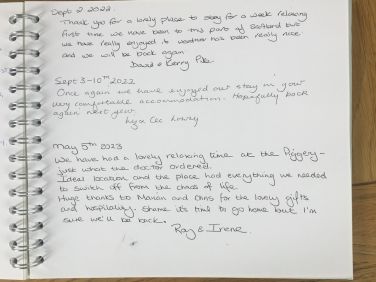 Sept 2 2022.
Thank you for a lovely place to stay for a week relaxing
first time we have been to this part of Scotland but
we have really enjoyed it weather has been really nice
and we will be back again
David & Kerry
Sept 3-10th 2022
Once again we have enjoyed our stay in your
very comfortable accommodation. Hopefully back
again next year
Cec Lowry
May 5th 2023
We have had a lovely relaxing time at the Piggery-
just what the doctor ordered.
Ideal location and the place had everything we needed
to switch off from the chaos of life.
Huge thanks to Marian and Chris for the lovely gifts
and hospitality. Shame it's time to go home but I'm
sure we'll be back.
Ray & Irene.